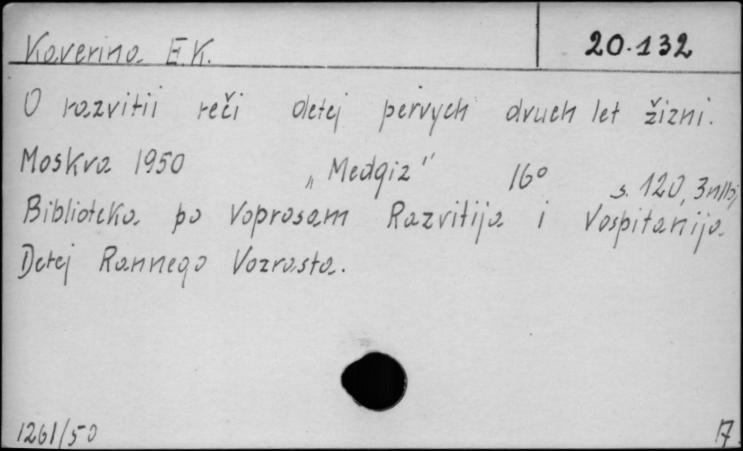 Kaverina E.K. 20.132
O razvitii reči detej pervych dvuch let žizni.
Moskva 1950 „Medgiz" 16° s. 120, 3nlb,
Biblioteka po Voprosam Razvitija i Vospitanija
Detej Rannego Vozrasta.
1261/50